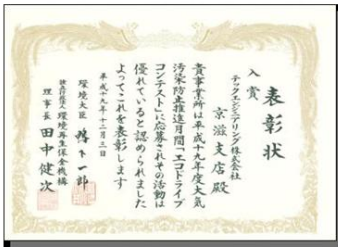 表彰状
入賞
テックエンジニアリング株式会社
京滋支店殿
貴事業所は平成十九年度大気
汚染防止推進月間「エコドライブ
コンテスト」に応募されその活動は
優れていると認められました
よってこれを表彰します
平成十九年十二月三日
環境大臣 鴨下一郎
独立行政法人環境再生保全機構
理事長 田中健次